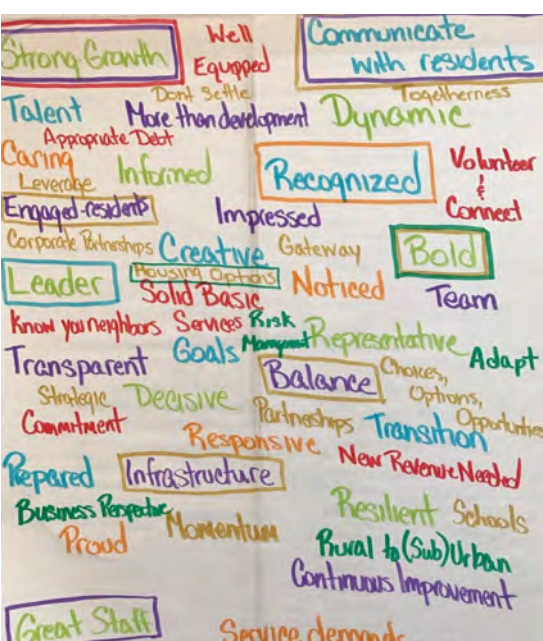 Strong Growth
Well
Equipped
Communicate
with residents
Don't Settle
Togetherness
Talent
More than development
Dynamic
Appropriate Debt
Caring
Leverage
Informed
Recognized
Volunteer
&
Connect
Engaged-residents
Impressed
Corporate Partnerships
Creative
Gateway
Bold
Leader
Housing Options
Solid Basic
Services
Noticed
Team
Know you neighbors
Risk
Management
Representative
Adapt
Transparent
Goals
Balance
Choices,
Options,
Opportunities
Strategic
Decisive
Partnerships
Transition
Commitment
Responsive
New Revenue Needed
Prepared
Infrastructure
Business Perspective
Momentum
Resilient
Schools
Proud
Rural to (Sub)Urban
Continuous Improvement
Great Staff
Service demands